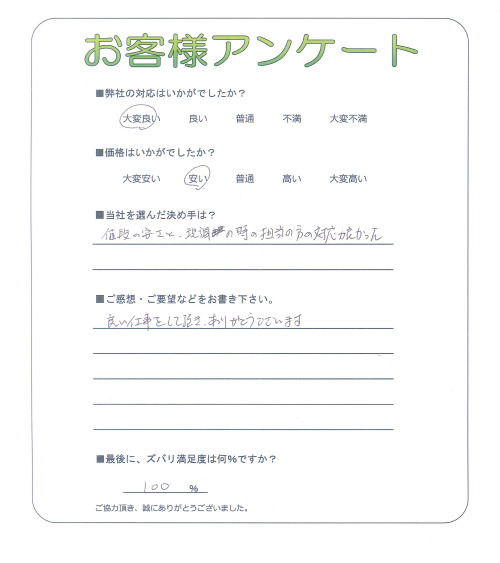 お客様アンケート
■弊社の対応はいかがでしたか？
大変良い 良い 普通 不満 大変不満
■価格はいかがでしたか？
大変安い 安い 普通 高い 大変高い
■当社を選んだ決め手は？
値段の安さと、現調の時の担当の方の対応が良かった
■ご感想・ご要望などをお書き下さい。
良い仕事をして頂き、ありがとうございます
■最後に、ズバリ満足度は何％ですか？
100 ％
ご協力頂き、誠にありがとうございました。